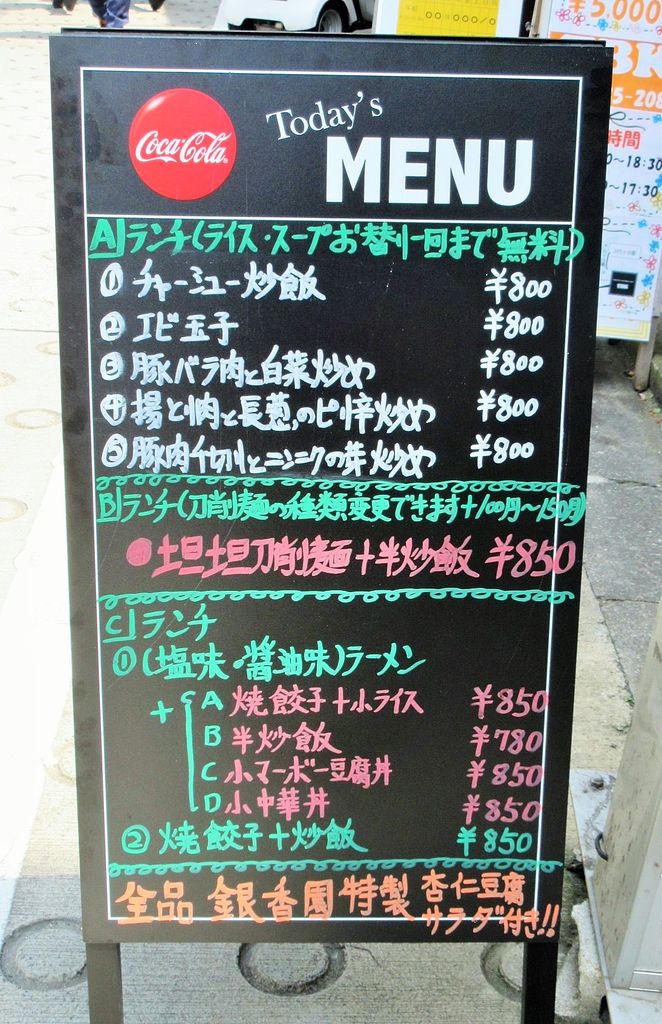 ¥5,000
BK
5-208
時間
0~18:30
0~17:30
Coca-Cola
Today's
MENU
Aランチ(ライス・スープお替り一回まで無料)
① チャーシュー炒飯 ¥800
② エビ玉子 ¥800
③ 豚バラ肉と白菜炒め ¥800
④ 揚と肉と長葱のピリ辛炒め ¥800
⑤ 豚肉千切りとニンニクの芽炒め ¥800
Bランチ(刀削麺の種類変更できます+100円~150円)
坦坦刀削麺+半炒飯 ¥850
Cランチ
①(塩味・醤油味)ラーメン
+ A 焼餃子+小ライス ¥850
B 半炒飯 ¥780
C 小マーボー豆腐丼 ¥850
D 小中華丼 ¥850
② 焼餃子+炒飯 ¥850
全品 銀香園特製 杏仁豆腐
サラダ付き!!